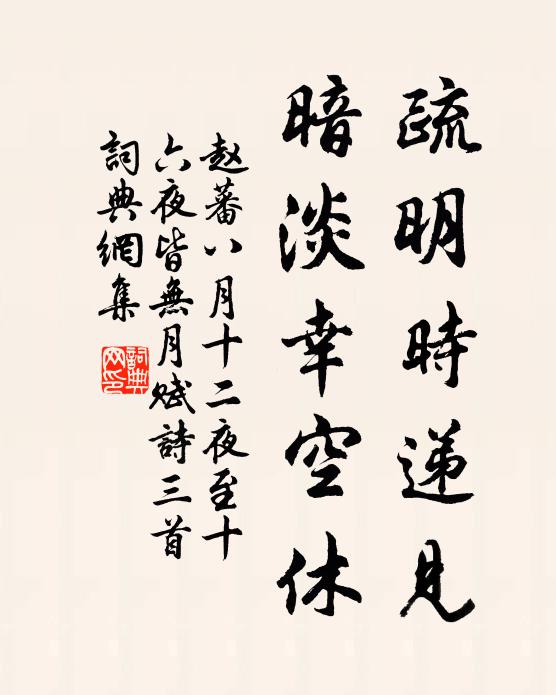 疏明時递見
暗淡幸空休
赵蕃八月十二夜至十
六夜皆無月赋詩三首
詞典網集
詞典网印